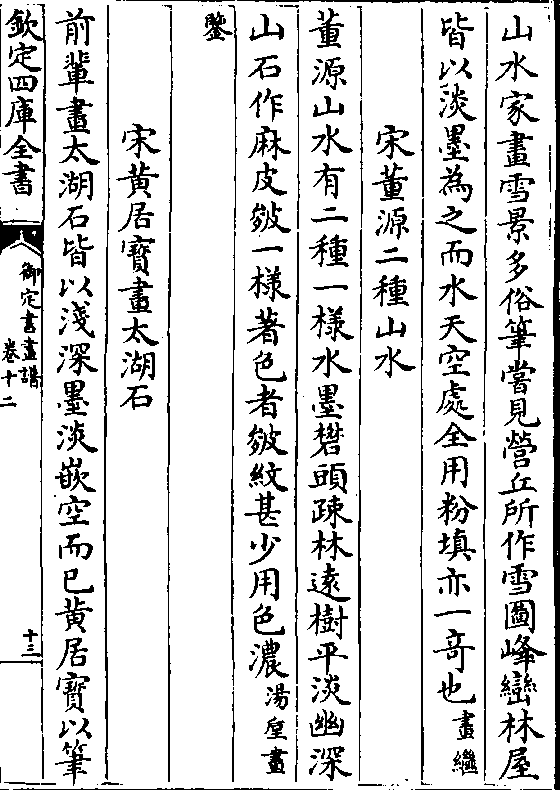 山水家畫雪景多俗筆嘗見營丘所作雪圖峰巒林屋
皆以淡墨為之而水天空處全用粉填亦一竒也畫繼
宋董源二種山水
董源山水有二種一樣水墨礬頭疎林遠樹平淡幽深
山石作麻皮皴一樣著色者皴紋甚少用色濃湯垕畫
鑒
宋黄居寳畫太湖石
前輩畫太湖石皆以淺深墨淡嵌空而已黄居寳以筆
欽定四庫全書
御定書畫譜
卷十二
十三